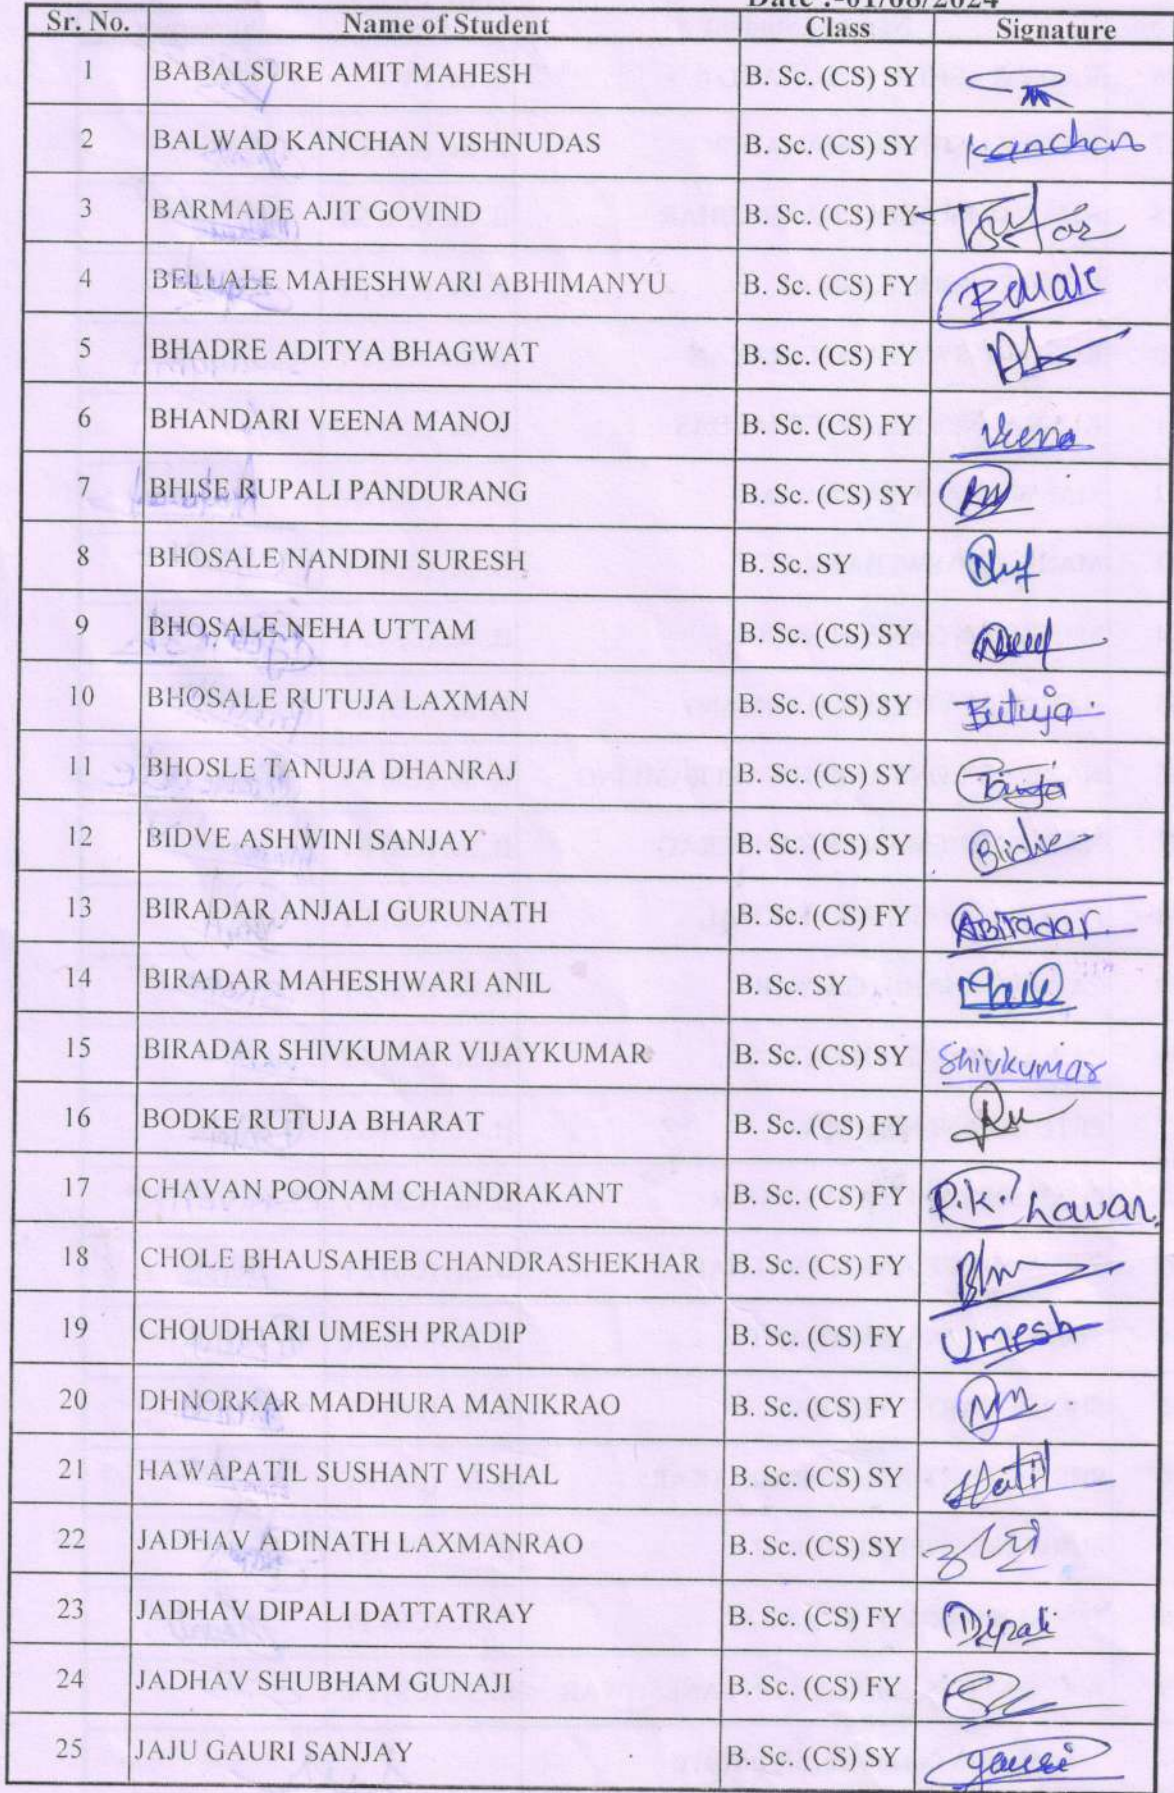 Date :-01/08/2024
Sr. No. Name of Student Class Signature
1 BABALSURE AMIT MAHESH B. Sc. (CS) SY
2 BALWAD KANCHAN VISHNUDAS B. Sc. (CS) SY Kanchan
3 BARMADE AJIT GOVIND B. Sc. (CS) FY
4 BELLALE MAHESHWARI ABHIMANYU B. Sc. (CS) FY Bellale
5 BHADRE ADITYA BHAGWAT B. Sc. (CS) FY
6 BHANDARI VEENA MANOJ B. Sc. (CS) FY Veena
7 BHISE RUPALI PANDURANG B. Sc. (CS) SY
8 BHOSALE NANDINI SURESH B. Sc. SY
9 BHOSALE NEHA UTTAM B. Sc. (CS) SY
10 BHOSALE RUTUJA LAXMAN B. Sc. (CS) SY Rutuja
11 BHOSLE TANUJA DHANRAJ B. Sc. (CS) SY
12 BIDVE ASHWINI SANJAY B. Sc. (CS) SY
13 BIRADAR ANJALI GURUNATH B. Sc. (CS) FY ABiradar
14 BIRADAR MAHESHWARI ANIL B. Sc. SY
15 BIRADAR SHIVKUMAR VIJAYKUMAR B. Sc. (CS) SY Shivkumar
16 BODKE RUTUJA BHARAT B. Sc. (CS) FY
17 CHAVAN POONAM CHANDRAKANT B. Sc. (CS) FY P.K.Chavan
18 CHOLE BHAUSAHEB CHANDRASHEKHAR B. Sc. (CS) FY
19 CHOUDHARI UMESH PRADIP B. Sc. (CS) FY Umesh
20 DHNORKAR MADHURA MANIKRAO B. Sc. (CS) FY
21 HAWAPATIL SUSHANT VISHAL B. Sc. (CS) SY
22 JADHAV ADINATH LAXMANRAO B. Sc. (CS) SY
23 JADHAV DIPALI DATTATRAY B. Sc. (CS) FY Dipali
24 JADHAV SHUBHAM GUNAJI B. Sc. (CS) FY
25 JAJU GAURI SANJAY B. Sc. (CS) SY Gauri